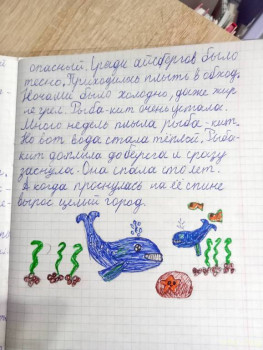 опасный. Среди айсбергов было
тесно. Приходилось плыть в обход.
Ночами было холодно, даже жир
не грел. Рыба-кит очень устала.
Много недель плыла рыба-кит.
Но вот вода стала тёплой. Рыба-
кит доплыла до берега и сразу
заснула. Она спала сто лет.
А когда проснулась на её спине
вырос целый город.